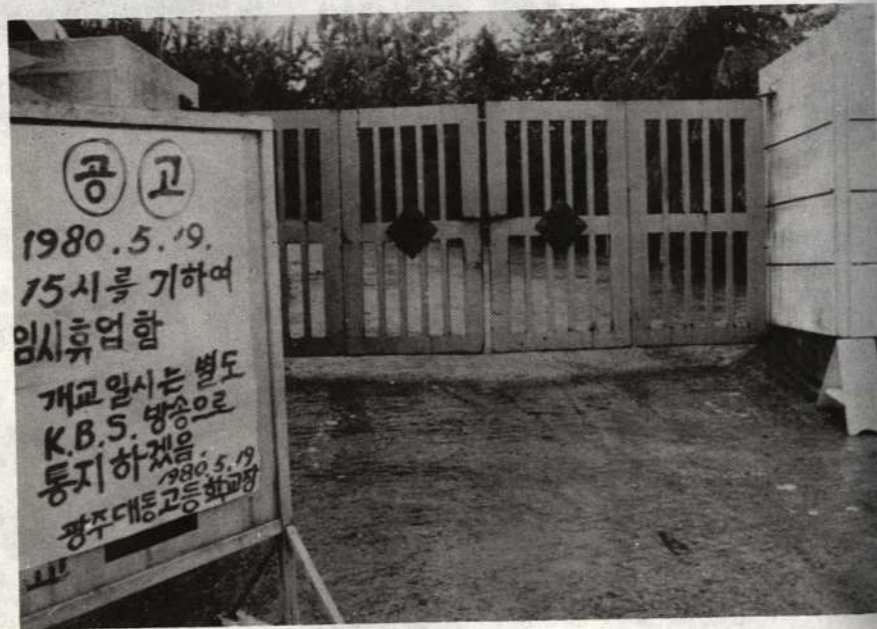 공고
1980.5.19.
15시를 기하여
임시휴업함
개교일시는 별도
K.B.S. 방송으로
통지하겠음.
1980.5.19
광주대동고등학교장